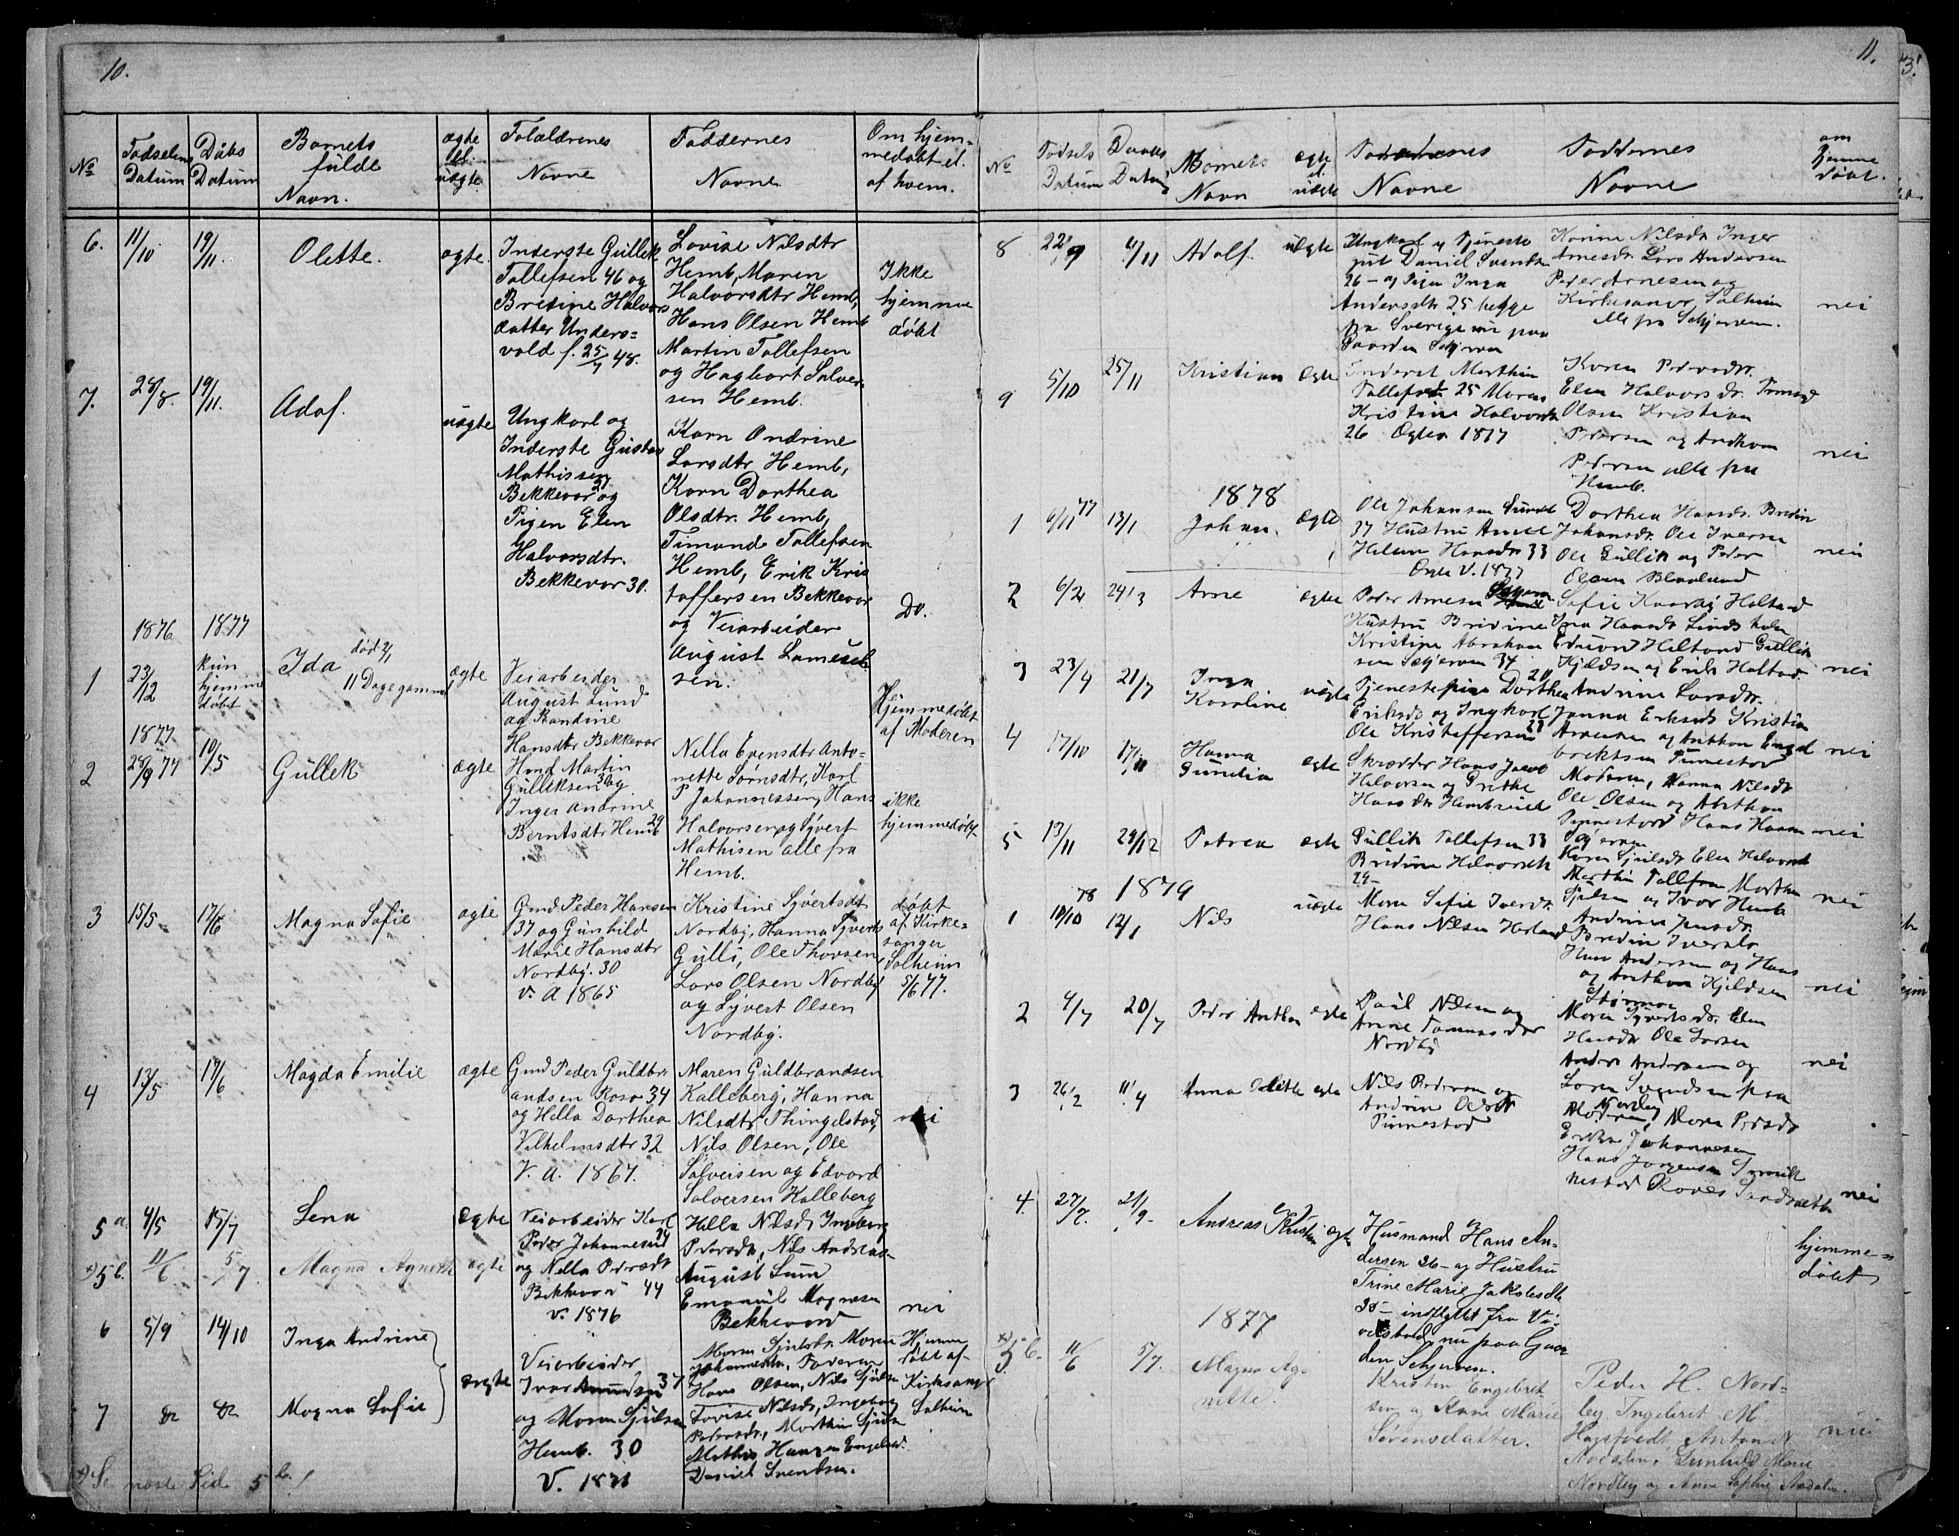 10.
No
Fødselens Datum
Dåbs Datum
Barnets fulde Navn.
ægte el. uægte
Forældrenes Navne
Faddernes Navne
Om hjemmedøbt el. af hvem.
6. 11/10 19/11 Olette. ægte.
Inderste Gullek
Tollefsen 46 og
Bredine Halvors
datter Unders-
vold f. 25/4 48.
Lovise Nilsdtr
Hemb, Maren
Halvorsdtr Hemb,
Hans Olsen Hemb
Martin Tollefsen
og Hagbart Salver
sen Hemb.
Ikke
hjemme
døbt
7. 28/8. 19/11. Adof. uægte
Ungkarl og
Inderste Gustav
Mathissen
Bekkevar og
Pigen Elen
Halvorsdtr.
Bekkevar 30.
Karn Ondrine
Larsdtr Hemb,
Karn Dorthea
Olsdtr. Hemb,
Timand Tollefsen
Hemb, Erik Kris
toffersen Bekkevar
og Veiarbeider
August
sen.
Do.
1876 1877
1 23/12 kun hjemme døbt Ida død 2/1 11 Dage gammel ægte
Veiarbeider
August Lund
og Randine
Hansdtr Bekkevar
Hjemmedøbt
af Moderen
1877
2 28/9 77 10/5 Gullek ægte
Hmd Martin
Gulleksen 30 og
Inger Andrine
Berntsdtr Hemb 29
Nella Evensdtr Anto-
nette Tornsdtr, Karl
P Johannessen, Hans
Halvorsen og Syvert
Mathisen alle fra
Hemb.
ikke
hjemmedøbt
3 15/5 17/6 Magna Sofie ægte
Gmd Peder Hansen
37 og Gunhild
Marie Hansdtr
Nordby. 30
v. A 1865
Kristine Syvertsdt
Nordby, Hanna Syverts
Gulli, Ole Thorsen,
Lars Olsen Nordby
og Syvert Olsen
Nordby.
døbt
af Kirke-
sanger
Solheim
5/6 77.
4 13/5 17/6 Magda Emilie ægte
Gmd Peder Guldbr
andsen Rosør 34
og Hella Dorthea
Vilhelmsdtr 32
V. A. 1867.
Maren Guldbrandsen
Kalleberg, Hanna
Nilsdtr Thingelstad,
Nils Olsen, Ole
Salvesen og Edvard
Salversen Kalleberg
nei
5a. 4/5 15/7 Lena Ægte
Veiarbeider Karl
Peder Johannesen 24
og Nella Pedersdt
Bekkevar 44
v. 1876
Hella Nilsdt, Ingeborg
Pedersdt, Nils Andreas
August Lun
Emanuel Magnesen
Bekkevar
nei
x) 5b. 11/6 5/7. Magna Agneth ægte
6 5/9 14/10 Inga Andrine
7 do do Magna Sofie
ægte
Veiarbeider
Ivar Amundsen 37
og Maren Sjulsen
Hemb. 30
V. 1871
Maren Sjulsdtr. Maren
Johannesdtr, Faderen
Hans Olsen, Nils Sjulsen
Lovise Nilsdt, Ingeborg
Pedersdt, Morthin Sjulsen
Mathis Hansen Engelund.
Daniel Svendsen.
Hjemme
døbt af
Kirksanger
Solheim
x) Se næste Side 5b!
11.
No
Fødsels Datum
Daabs Datum
Barnets Navn
ægte el uægte
Forældrenes Navne
Faddernes Navne
om hjemme døbt.
8 22/9 4/11 Adolf. uægte
Ungkarl og Tjeneste
gut Daniel Svendsen
26 – og Pigen Inga
Andersdt 25 begge
fra Sverige nu paa
Gaarden Skjerven
Karine Nilsdt Inger
Arnesdt Lars Andersen
Peder Arnesen og
Kirkesanger Solheim
alle fra Skjerven.
nei
9 5/10 25/11 Kristian Ægte
Inderst Morthin
Tollefsen 25 Maren
Kristine Halvorsdt
26 Ægtev 1877
Karen Pedersdtr.
Elen Halvorsdt. Timand
Olsen Kristian
Pedersen og Anthon
Pedersen alle fra
Hemb.
nei
1878
1 6/11 77 13/1 Johan. Ægte
Ole Johansen Sunde
37 Hustru Anne
Helene Hansdt 33
Ægte V. 1877
Dorthea Hansdt. Bredine
Johansdt. Ole Iversen
Ole Gullik og Peder
Olsen Blaalund
nei
2 6/2 24/3 Arne Ægte
Peder Arnesen
Hustru Bredine
Kristine Abraham
sen Skjerven 34
Sofie Holtand
Ina Hansdt Lindsholm
Edvard Holtand Gullik
Kjeldsen og Erik Holtad.
nei
3 23/4 21/7 Inga Karoline uægte
Tjenestepige Dorthea 20
Eriksdt og Ungkarl
Ole Kristoffersen 23
Andrine Larsdtr.
Janna Eriksdt Kristian
Arnesen og Anthon Engel
brektsen Finnestad
nei
4 17/10 17/11 Hanna Gunelia ægte
Skrædder Hans Jacob
Halvorsen og Grethe
Hansdtr Hembseied
Moderen, Hanna Nilsdt
Ole Olsen og Anthon
Finnestad Hans Hansen
Skjerven
nei
5 13/11 29/12 Petrea ægte
Gullik Tollefsen 33
Bredine Halvorsdt
29 –
Karen Sjulsdt Elen Halvorsdt
Morthin Tollefsen Morthin
Sjulsen og Ivar Hemb
nei
1879
1 10/10 78 12/1 Nils uægte
Maren Sofie Iversdt.
Hans Nilsen
Andrine Jensdt.
Bredine Iversdt
Hans Andersen og Hans
og Anthon Kjeldsen
nei
2 4/7 20/7 Peder Anthon ægte
Paul Nilsen og
Anne Tommasdtr
Nordby
Maren Syvertsdt. Elen
Hansdt Ole Larsen
Anders Andersen og
Søren Svendsen paa
Nordby
nei
3 26/2 11/4 Anna Collette ægte
Nils Pedersen og
Andrine Olsdtr
Finnestad
Moderen, Maren Pedersdt
Johannesen
Hans Jørgensen
nei
4. 27/7. 21/9. Andreas Kristian ægte
Husmand Hans An-
dersen 26 – og Hustru
Trine Marie Jakobsdtr
25 – indflyttet fra Vi-
velstad, nu paa Gaar
den Skjerven.
hjemme-
døbt
1877
x) 5b. 11/6 5/7. Magna Ag-
nette.
Kristen Engebret
sen og Anne Marie
Sørensdatter.
Peder H. Nord-
by Ingebret M.
Hagtvedt Anton N
Nødalen, Gunhild Marie
Nordby og Anne Sophie Aadalen.
nei